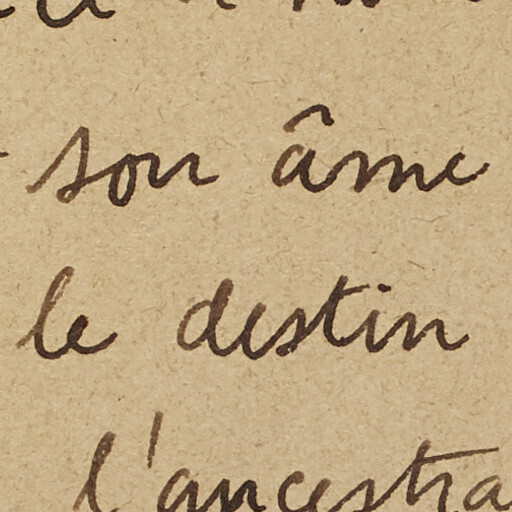 son âme
le destin
l'ancestra